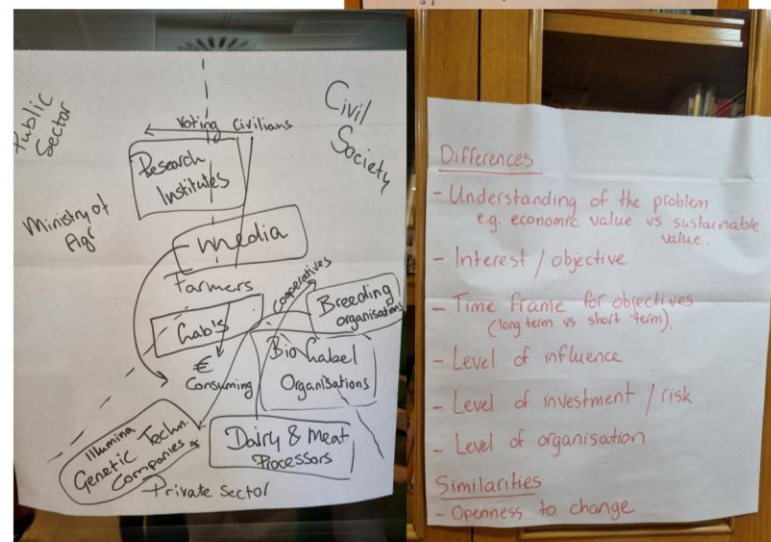 Public
Sector
Civil
Society
Voting Civilians
Research
Institutes
Ministry of
Agr
media
Farmers
Cooperatives
Breeding
Organisations
Lab's
€
Consuming
Bio Label
Organisations
Illumina
Genetic Techn.
Companies
Dairy & Meat
Processors
Private Sector
Differences
- Understanding of the problem
e.g. economic value vs sustainable
value.
- Interest / objective
- Time frame for objectives
(long term vs short term).
- Level of influence
- Level of investment / risk
- Level of organisation
Similarities
- Openness to change